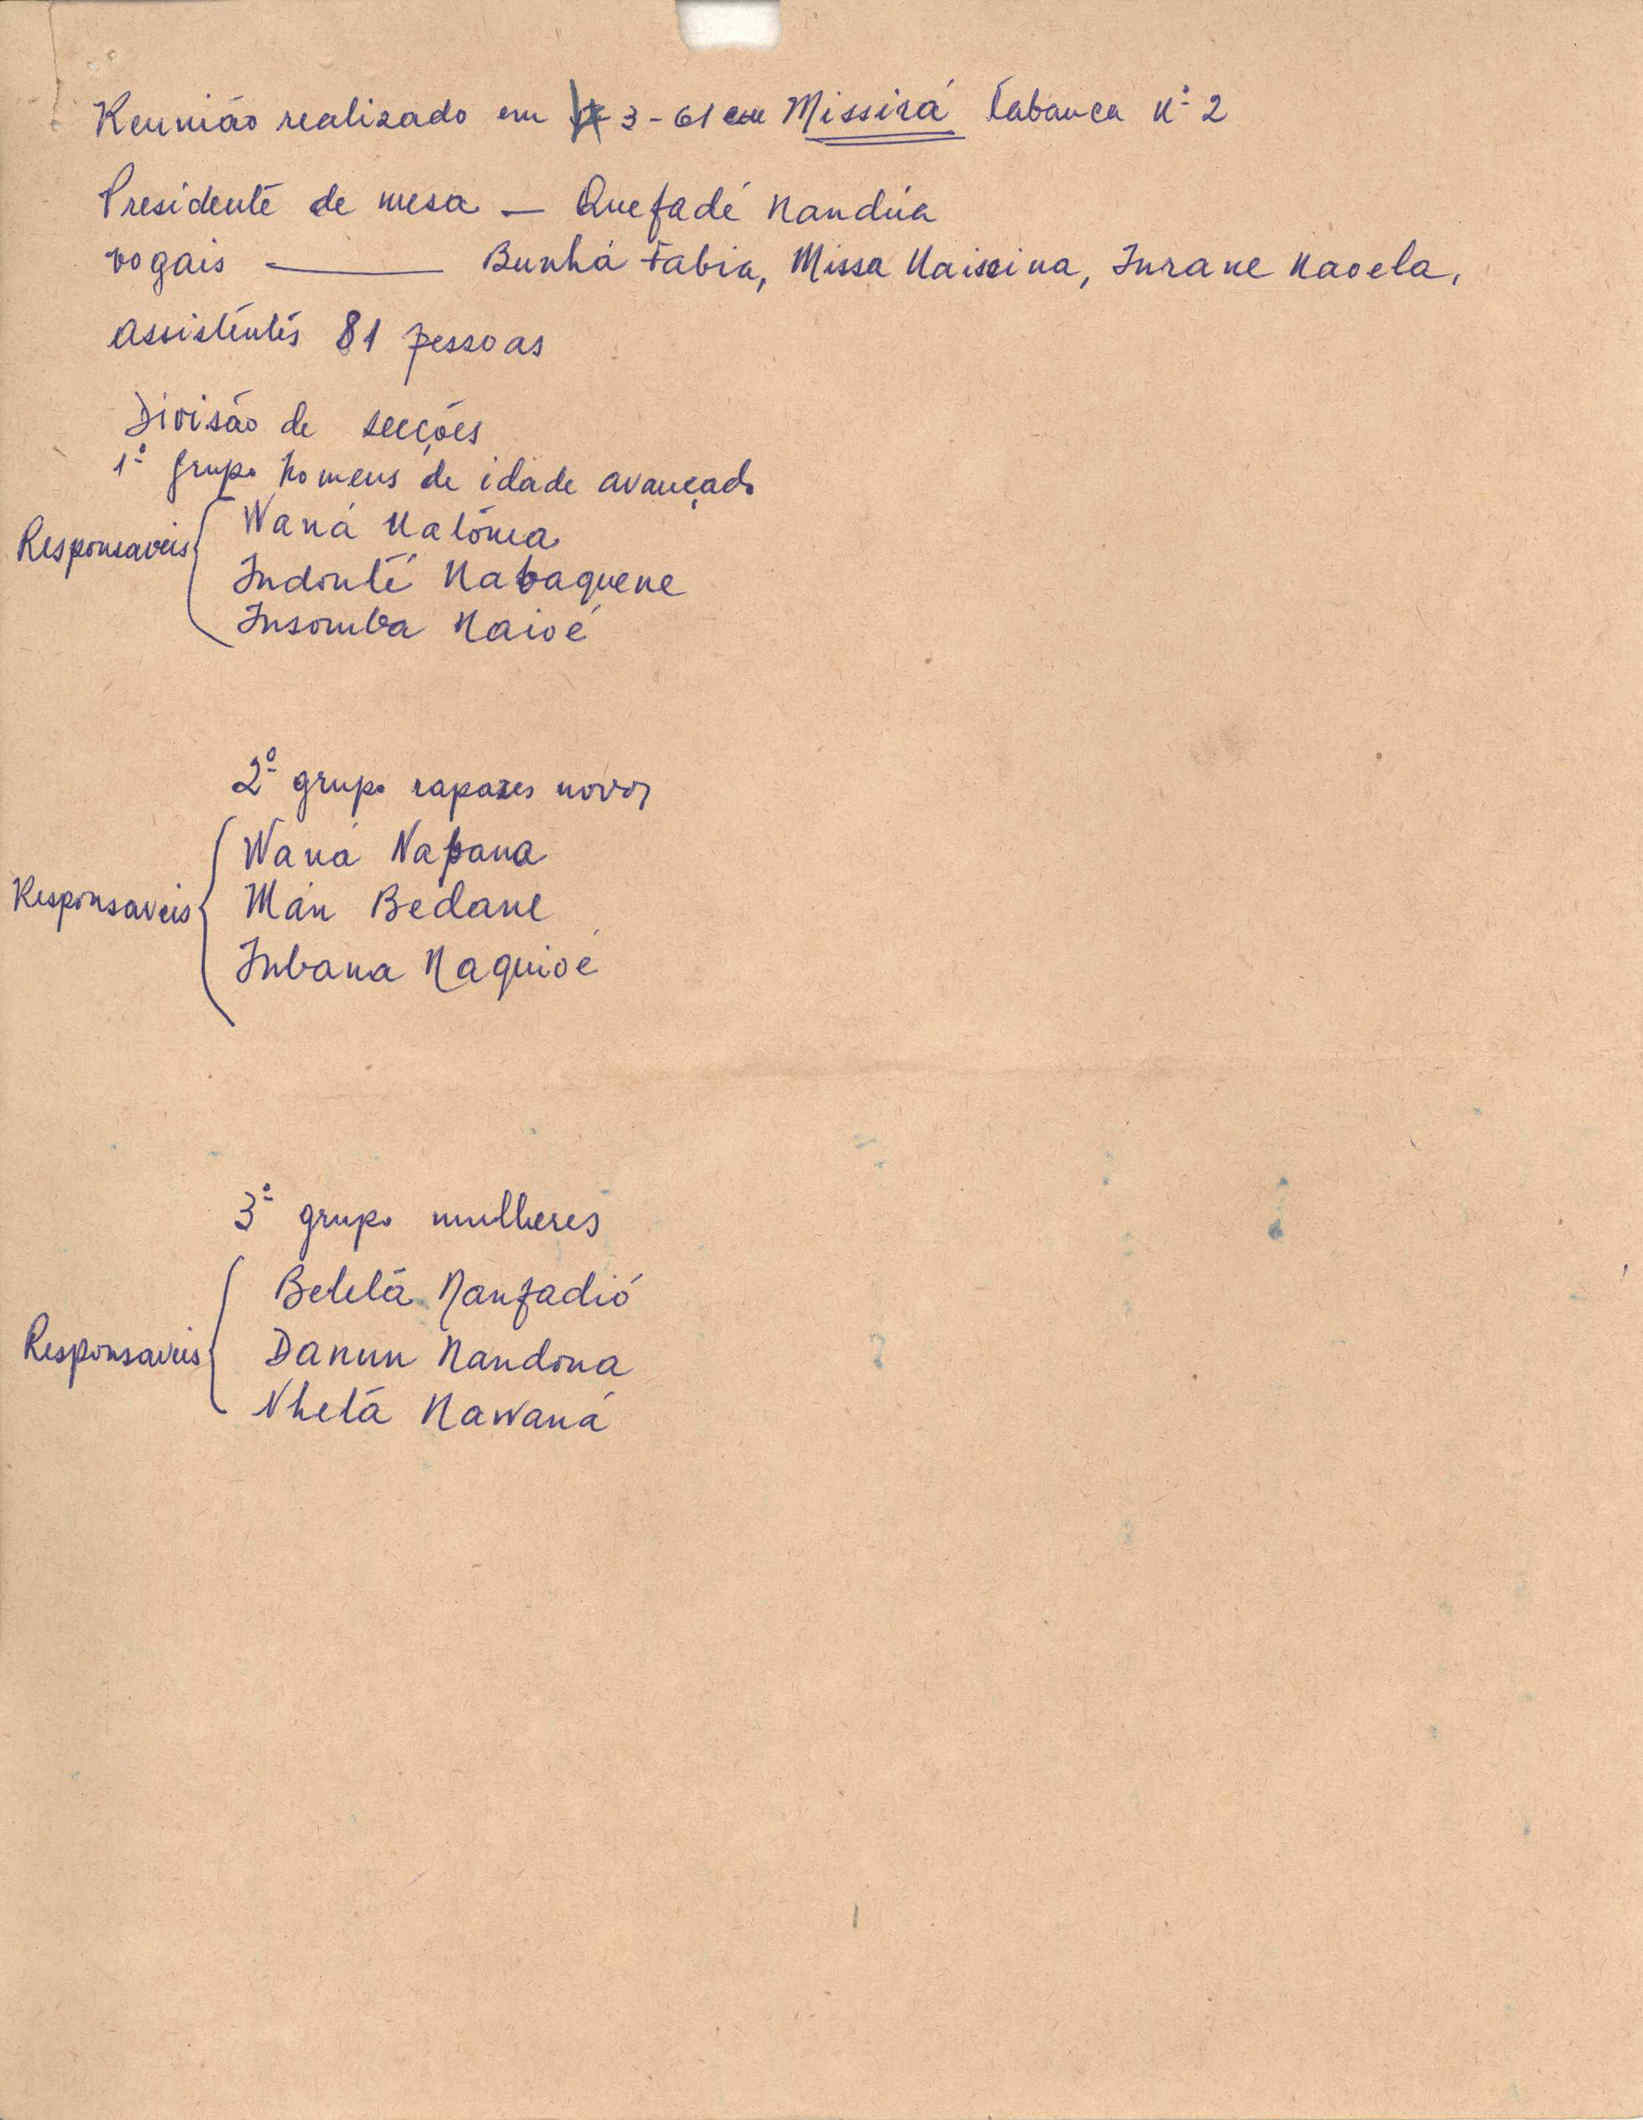 Reunião realizado em 3-61 em Missirá Tabanca nº 2
Presidente de mesa — Quefadé Nandúa
vogais ——— Bunhá Fabia, Missa Naissina, Inrane Naoela,
Assistentes 81 pessoas
Divisão de secções
1º grupo homens de idade avançado
Responsaveis
Waná Natóma
Indonté Nabaquene
Insomba Naioé
2º grupo rapazes novos
Responsaveis
Waná Napana
Mán Bedane
Inbana Naquioé
3º grupo mulheres
Responsaveis
Betetá Nanfadió
Danun Nandona
Nhetá Nawaná